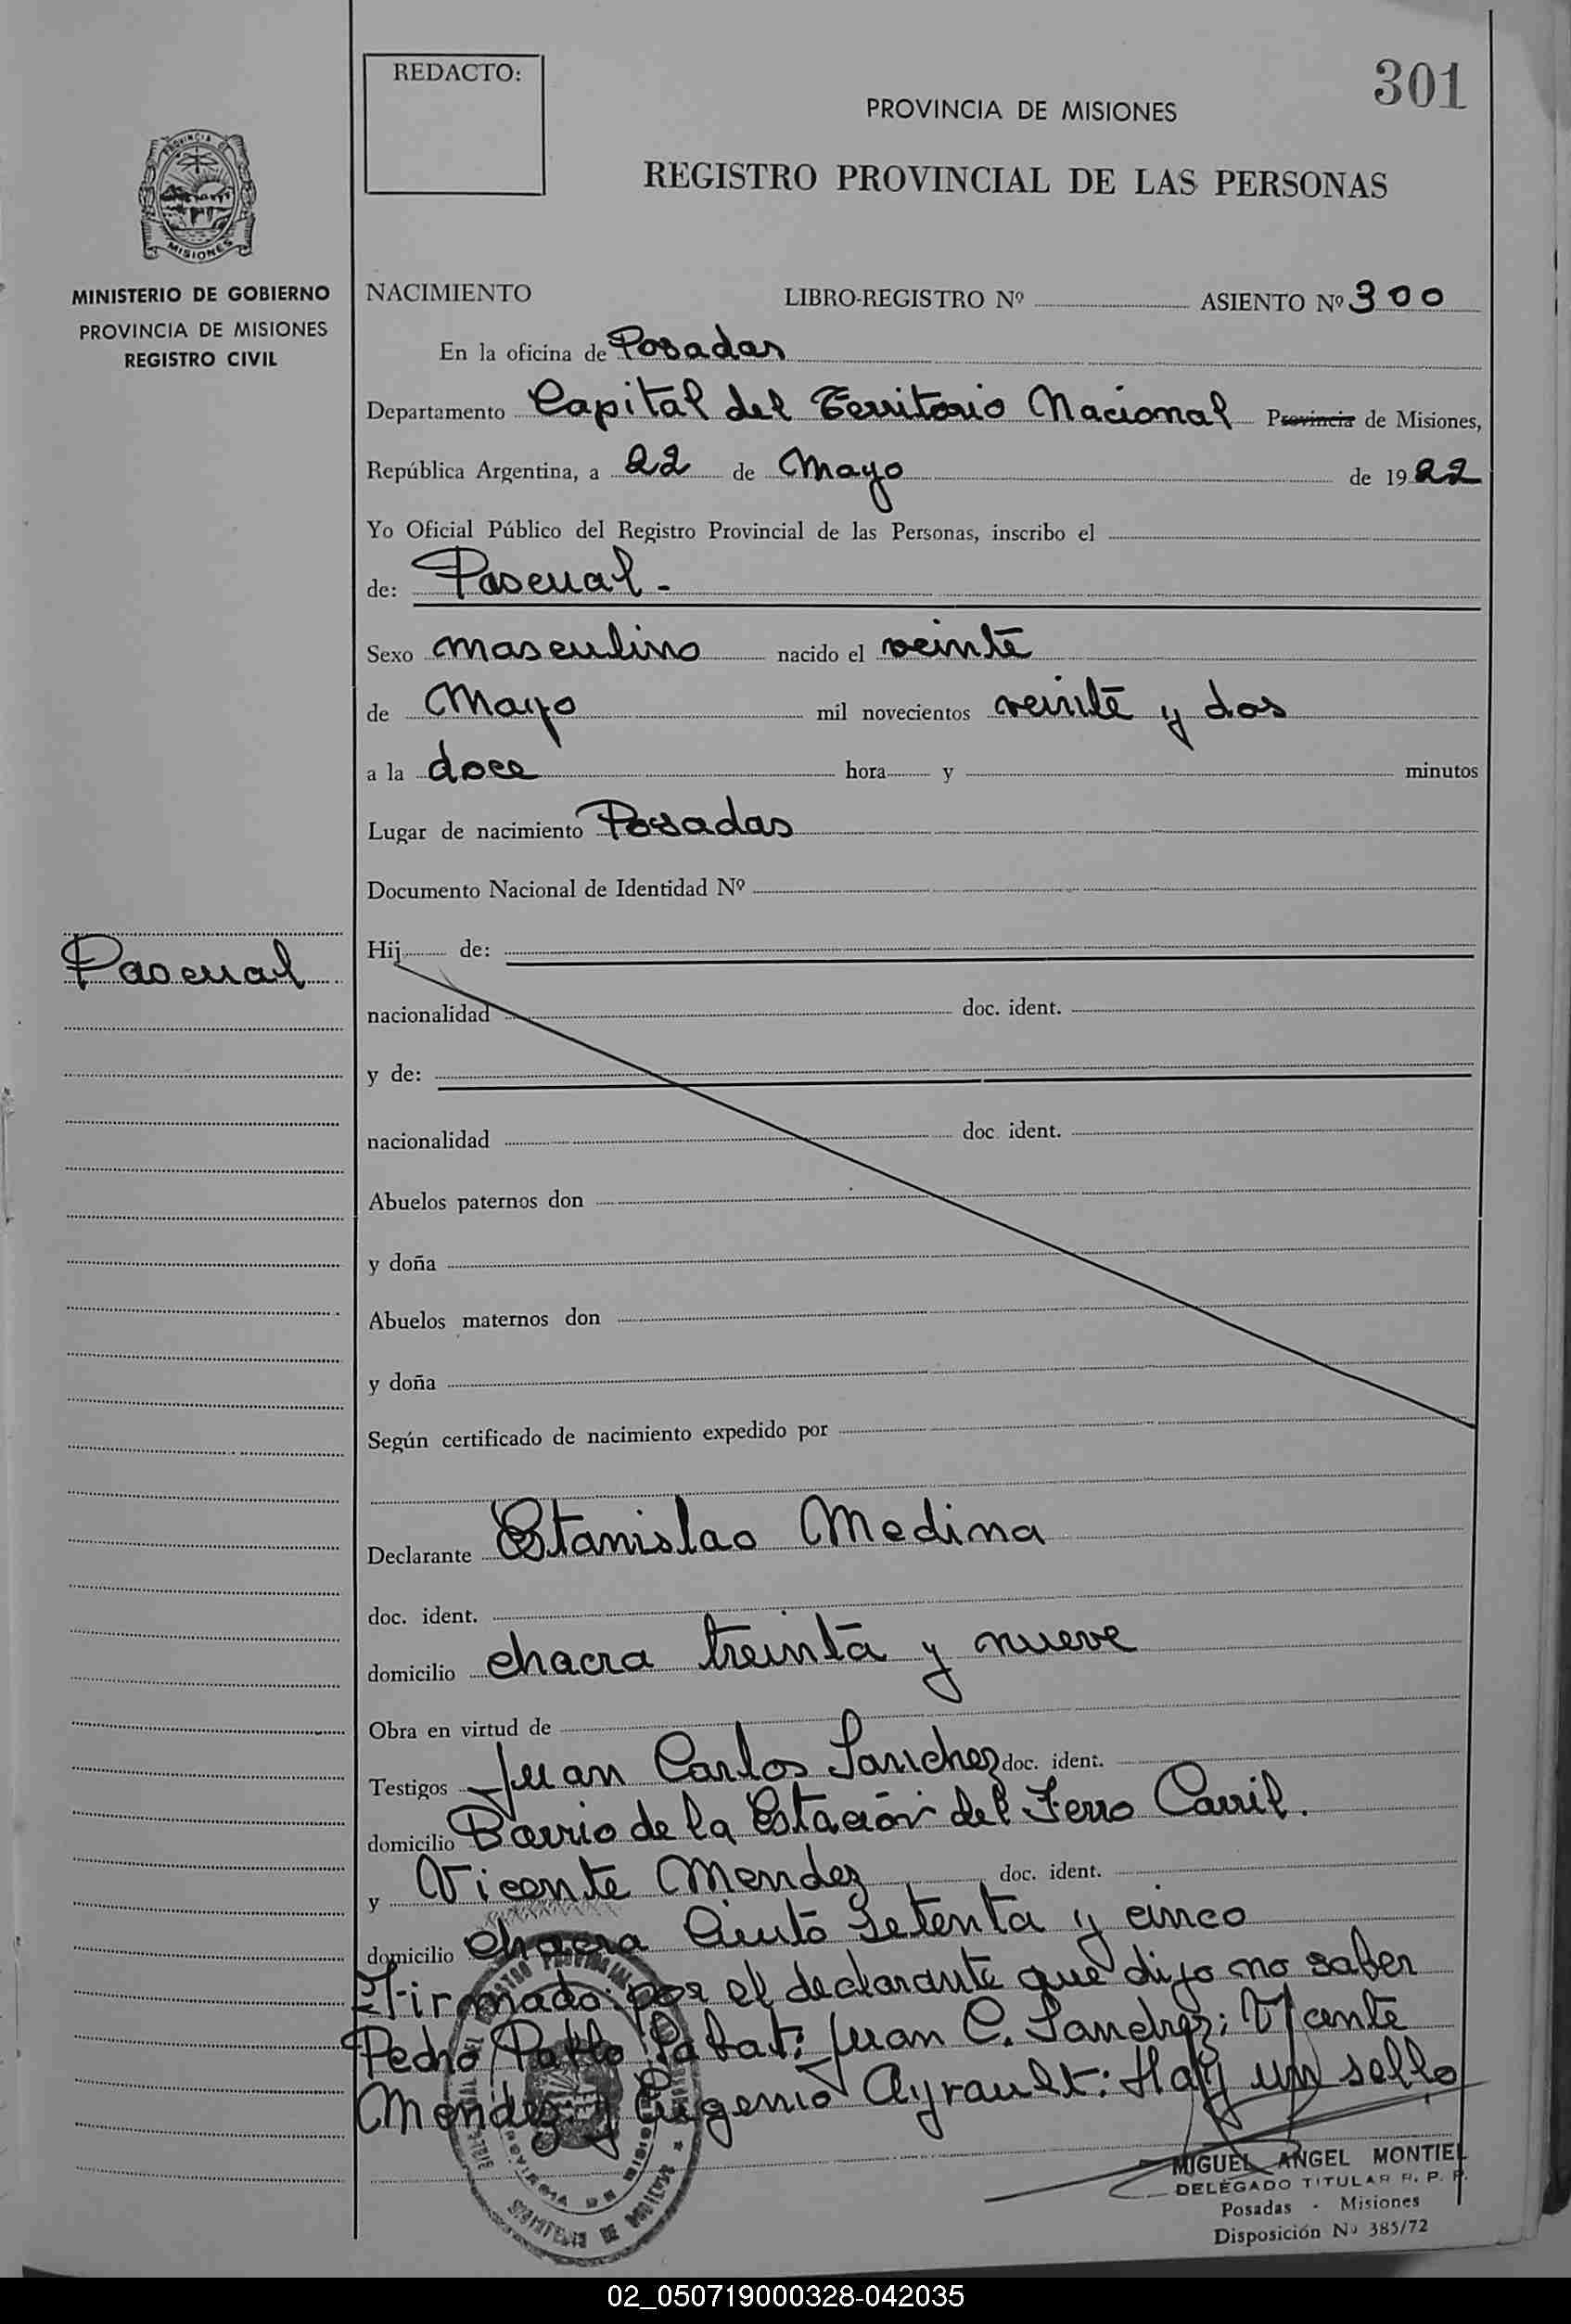 REDACTO:
301
PROVINCIA DE MISIONES
REGISTRO PROVINCIAL DE LAS PERSONAS
PROVINCIA DE
MISIONES
MINISTERIO DE GOBIERNO
PROVINCIA DE MISIONES
REGISTRO CIVIL
NACIMIENTO LIBRO-REGISTRO Nº ASIENTO Nº 300
En la oficina de Posadas
Departamento Capital del Territorio Nacional Provincia de Misiones,
República Argentina, a 22 de Mayo de 1922
Yo Oficial Público del Registro Provincial de las Personas, inscribo el
de: Pascual.-
Sexo masculino nacido el veinte
de Mayo mil novecientos veinte y dos
a la doce hora y minutos
Lugar de nacimiento Posadas
Documento Nacional de Identidad Nº
Pascual
Hij de:
nacionalidad doc. ident.
y de:
nacionalidad doc. ident.
Abuelos paternos don
y doña
Abuelos maternos don
y doña
Según certificado de nacimiento expedido por
Declarante Estanislao Medina
doc. ident.
domicilio chacra treinta y nueve
Obra en virtud de
Testigos Juan Carlos Sanchez doc. ident.
domicilio Barrio de la Estación del Ferro Carril.
y Vicente Mendez doc. ident.
domicilio chacra Ciento Setenta y cinco
Firmado: por el declarante que dijo no saber
Pedro Pablo Juan C. Sanchez; Vicente
Mendez y Eugenio Ayrault: Hay un sello
MIGUEL ANGEL MONTIEL
DELEGADO TITULAR R. P. P.
Posadas - Misiones
Disposición Nº 385/72
02_050719000328-042035